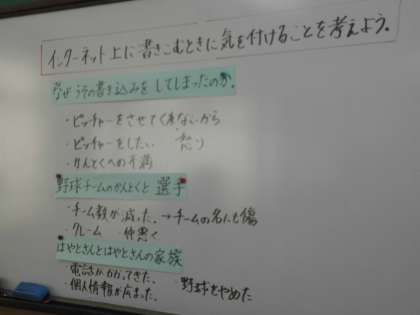 インターネット上に書きこむときに気を付けることを考えよう。
なぜうその書き込みをしてしまったのか。
・ピッチャーをさせてくれないから
・ピッチャーをしたい 怒り
・かんとくへの不満
野球チームのかんとくと選手
・チーム数が減った。→チームの名にも傷
・クレーム ・仲悪く
はやとさんとはやとさんの家族
・電話がかかってきた。
・個人情報が広まった。 ・野球をやめた